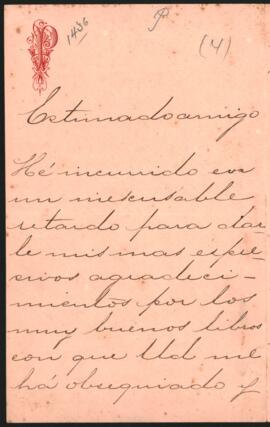 P
1486
P
(4)
Estimado amigo
Hé incurrido en
un inescusable
retardo para dar-
le mis mas espre-
sivos agradeci-
mientos por los
muy buenos libros
con que Ud me
há obsequiado y